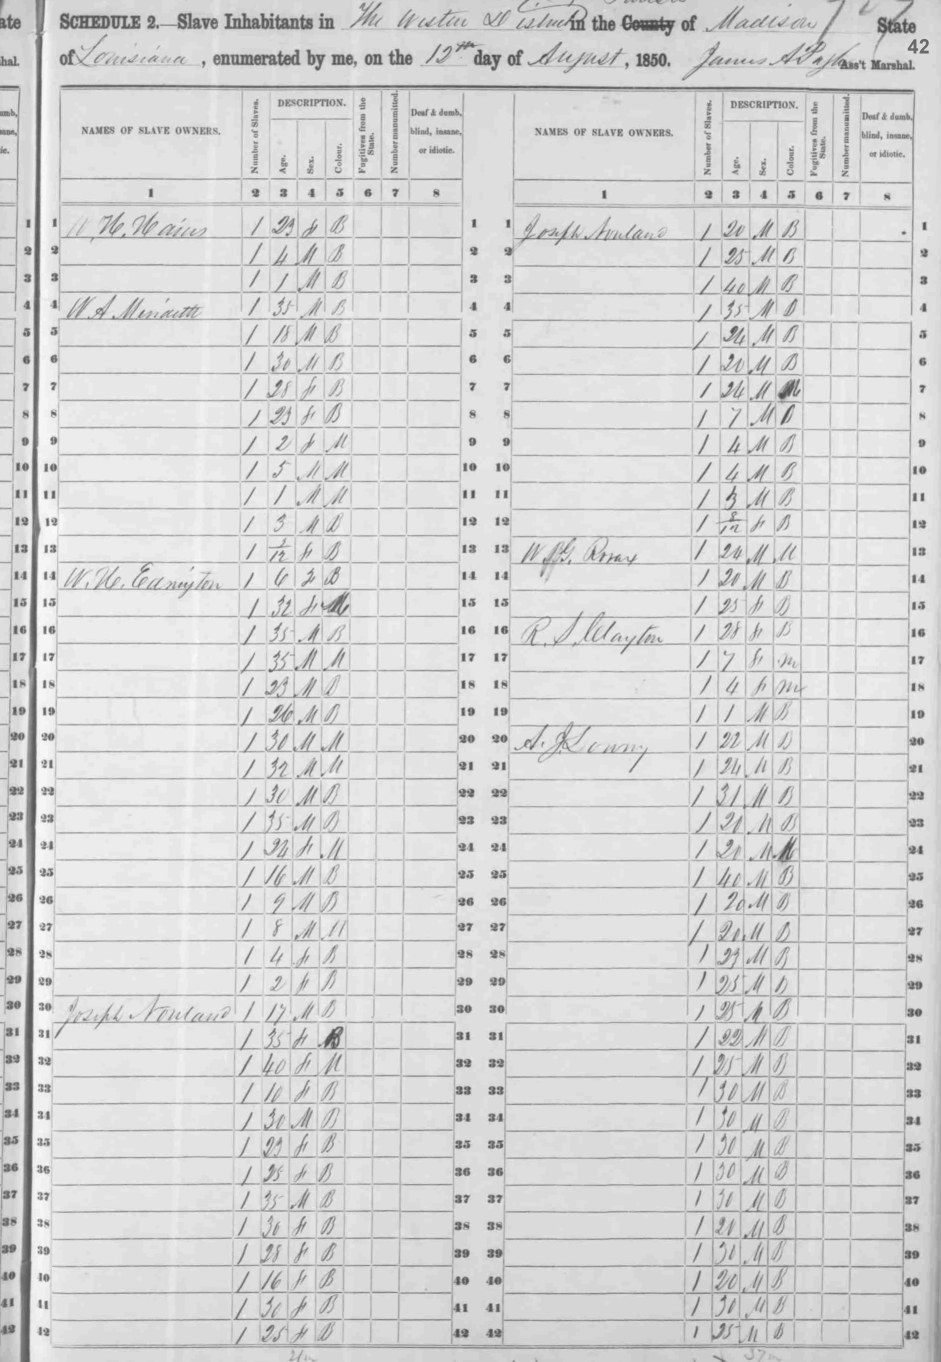 SCHEDULE 2.—Slave Inhabitants in The Western District in the County of Madison State
of Louisiana, enumerated by me, on the 12th day of August, 1850. James A Ass't Marshal.
42
NAMES OF SLAVE OWNERS. Number of Slaves. DESCRIPTION. Age. Sex. Colour. Fugitives from the State. Number manumitted. Deaf & dumb, blind, insane, or idiotic.
1 2 3 4 5 6 7 8
1 W. H. Hains 1 23 f B 1
2 1 4 M B 2
3 1 1 M B 3
4 W A 1 35 M B 4
5 1 18 M B 5
6 1 30 M B 6
7 1 28 f B 7
8 1 23 f B 8
9 1 2 f M 9
10 1 5 M M 10
11 1 1 M M 11
12 1 3 M B 12
13 1 /12 f B 13
14 W. H. Edrington 1 6 B 14
15 1 32 f M 15
16 1 35 M B 16
17 1 35 M M 17
18 1 23 M B 18
19 1 26 M B 19
20 1 30 M M 20
21 1 32 M M 21
22 1 30 M B 22
23 1 35 M B 23
24 1 f M 24
25 1 16 M B 25
26 1 9 M B 26
27 1 8 M M 27
28 1 4 f B 28
29 1 2 f B 29
30 Joseph Nouland 1 17 M B 30
31 1 35 f B 31
32 1 40 f M 32
33 1 10 f B 33
34 1 30 M B 34
35 1 23 f B 35
36 1 25 f B 36
37 1 35 M B 37
38 1 30 f B 38
39 1 28 f B 39
40 1 16 f B 40
41 1 30 f B 41
42 1 25 f B 42
NAMES OF SLAVE OWNERS. Number of Slaves. DESCRIPTION. Age. Sex. Colour. Fugitives from the State. Number manumitted. Deaf & dumb, blind, insane, or idiotic.
1 2 3 4 5 6 7 8
1 Joseph Nouland 1 20 M B 1
2 1 25 M B 2
3 1 40 M B 3
4 1 35 M B 4
5 1 24 M B 5
6 1 20 M B 6
7 1 24 M M 7
8 1 7 M B 8
9 1 4 M B 9
10 1 4 M B 10
11 1 3 M B 11
12 1 /12 f B 12
13 1 24 M M 13
14 1 20 M B 14
15 1 25 f B 15
16 R. S. Clayton 1 28 f B 16
17 1 7 f m 17
18 1 4 f m 18
19 1 1 M B 19
20 A. J. Lowry 1 22 M B 20
21 1 24 M B 21
22 1 31 M B 22
23 1 20 M B 23
24 1 20 M M 24
25 1 40 M B 25
26 1 20 M B 26
27 1 20 M B 27
28 1 23 M B 28
29 1 25 M B 29
30 1 25 M B 30
31 1 22 M B 31
32 1 25 M B 32
33 1 30 M B 33
34 1 30 M B 34
35 1 30 M B 35
36 1 30 M B 36
37 1 30 M B 37
38 1 20 M B 38
39 1 30 M B 39
40 1 20 M B 40
41 1 30 M B 41
42 1 25 M B 42